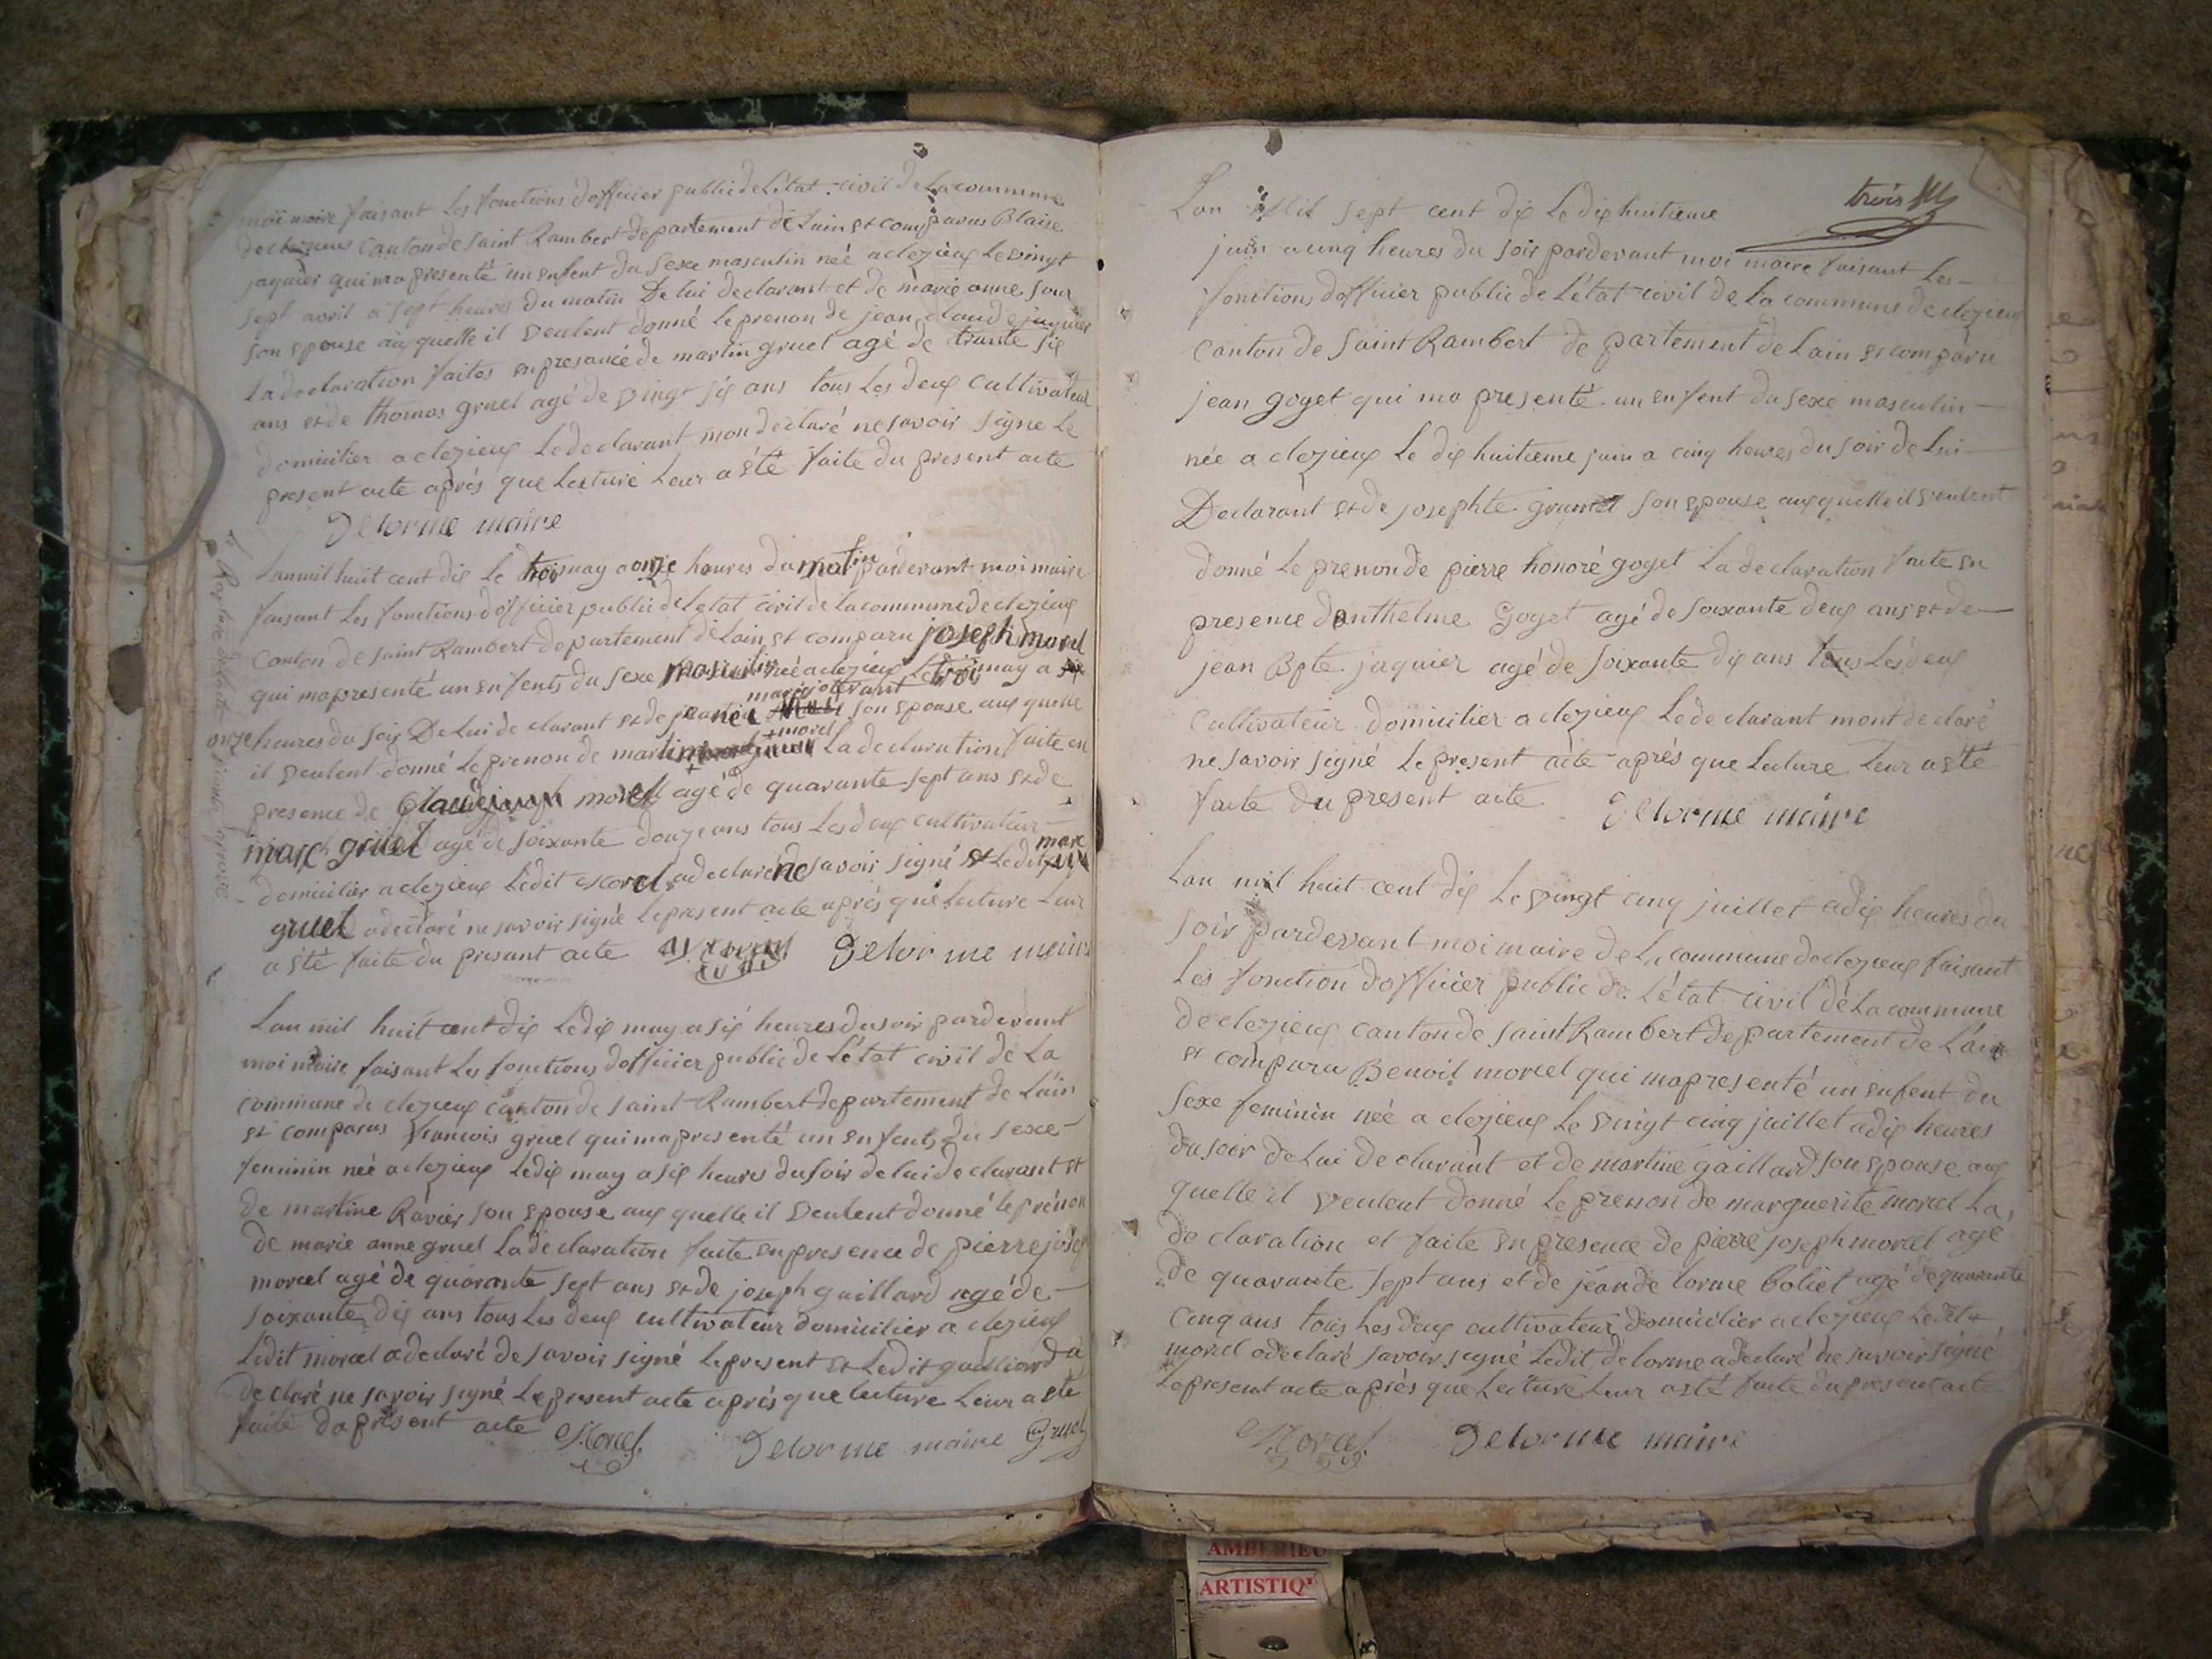 moi maire faisant Les fonctions dofficier public de Letat-civil de La commune
de clezieux canton de saint Rambert departement de Lain et comparus Blaise
jaquier qui ma presenté un enfent du sexe masculin neé a clezieux Le vingt
sept avril a sept heures du matin De lui declarant et de marie anne
son epouse aux quelle il veulent donné Le prenon de jean claude jaquier
La declaration faites en presance de martin gruel agé de trante six
ans et de thomas gruel agé de vingt six ans tous Les deux cultivateur
domicilier a clezieux Le declarant mon declaré ne savoir signe Le
present acte aprés que Lecture Leur a été faite du present acte
Delorme maire
Lan mil huit cent dix Le trois may a onze heures du matin pardevant moi maire
faisant Les fonctions dofficier public de Letat civil de La commune de clezieux
Canton de saint Rambert departement de Lain et comparu joseph morel
qui ma presenté un enfents du sexe masculin neé a clezieux Le trois may a
onze heures du soir De Lui declarant et de son epouse aux quelle
il veulent donné Le prenon de martin morel La declaration faite en
presence de Claude joseph morel agé de quarante sept ans et de
marc gruel agé de soixante douze ans tous Les deux cultivateur
domicilier a clezieux Ledit morel a declaré ne savoir signé et Ledit marc
gruel a declaré ne savoir signé Le present acte aprés que Lecture Leur
a été faite du presant acte Morcel Delorme maire
Lan mil huit cent dix Le dix may a six heures du soir pardevant
moi maire faisant Les fonctions dofficier public de Létat civil de La
commune de clezieux canton de saint Rambert departement de Lain
et comparus francois gruel qui ma presenté un enfents du sexe
feminin neé a clezieux Le dix may a six heures du soir de lui declarant et
de martine Ravier son epouse aux quelle il veulent donné le prénon
de marie anne gruel La declaration faite en presence de pierre josep
morcel agé de quarante sept ans et de joseph gaillard agé de
soixante dix ans tous Les deux cultivateur domicilier a clezieux
Ledit morcel a declaré de savoir signé Le present et Ledit gaillard a
declaré ne savoir signé Le present acte aprés que Lecture Leur a été
faite du présent acte Morcel. Delorme maire Gruel
trois
Lan Mil sept cent dix Le dix huitieme
juin a cinq heures du soir pardevant moi maire faisant Les
fonctions dofficier public de Létat civil de La commune de clezieux
Canton de saint Rambert departement de Lain et comparu
jean goyet qui ma presenté un enfent du sexe masculin
née a clezieux Le dix huitieme juin a cinq heures du soir de Lui
Declarant et de josephte son epouse aux quelle il veulent
donné Le prenon de pierre honoré goyet La declaration faite en
presence danthelme Goyet agé de soixante deux ans et de
jean Bpte jaquier agé de soixante dix ans tous Les deux
cultivateur domicilier a clezieux Le declarant mont declaré
ne savoir signé Le present acte aprés que Lecture Leur a été
faite du present acte. Delorme maire
Lan mil huit cent dix Le vingt cinq juillet a dix heures du
soir pardevant moi maire de La commune de clezieux faisant
Les fonction dofficier public de Létat civil de La commune
de clezieux canton de saint Rambert departement de Lain
et comparu Benoit morcel qui ma presenté un enfent du
sexe feminin neé a clezieux Le vingt cinq juillet a dix heures
du soir de Lui declarant et de martine gaillard son epouse aux
quelle il veulent donné Le prenon de marguerite morcel La
declaration et faite en presence de pierre joseph morcel agé
de quarante sept ans et de jean de lorme boliet agé de quarante
cinq ans tous Les deux cultivateur domicilier a clezieux Ledit
morcel a declaré savoir signé Ledit delorme a declaré ne savoir signé
Le present acte aprés que Lecture Leur a été faite du present act
Morcel. Delorme maire
AMBERIEU
ARTISTIQ